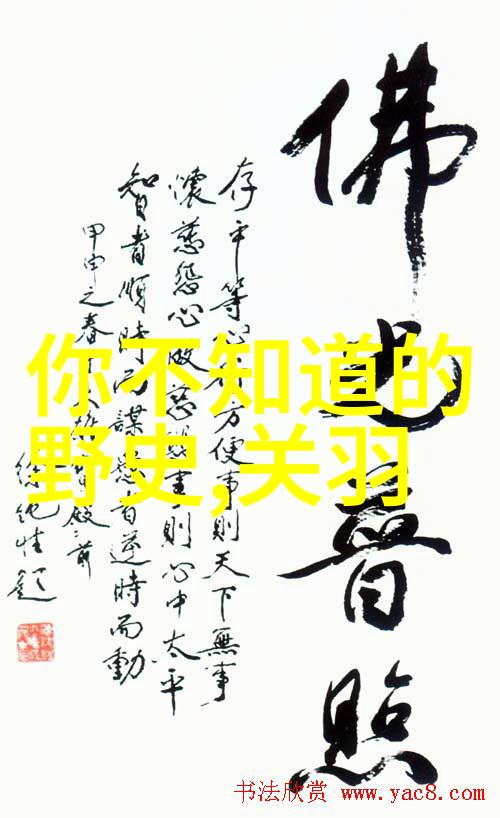 你不知道的
野史,关羽
佛光普照
存平等心行方便事則天下無事
懷慈悲心做慈悲事則心中太平
智者順時而謀愚者逆時而動
甲申之春于大雄寶殿前
书法欣赏 www.yac8.com